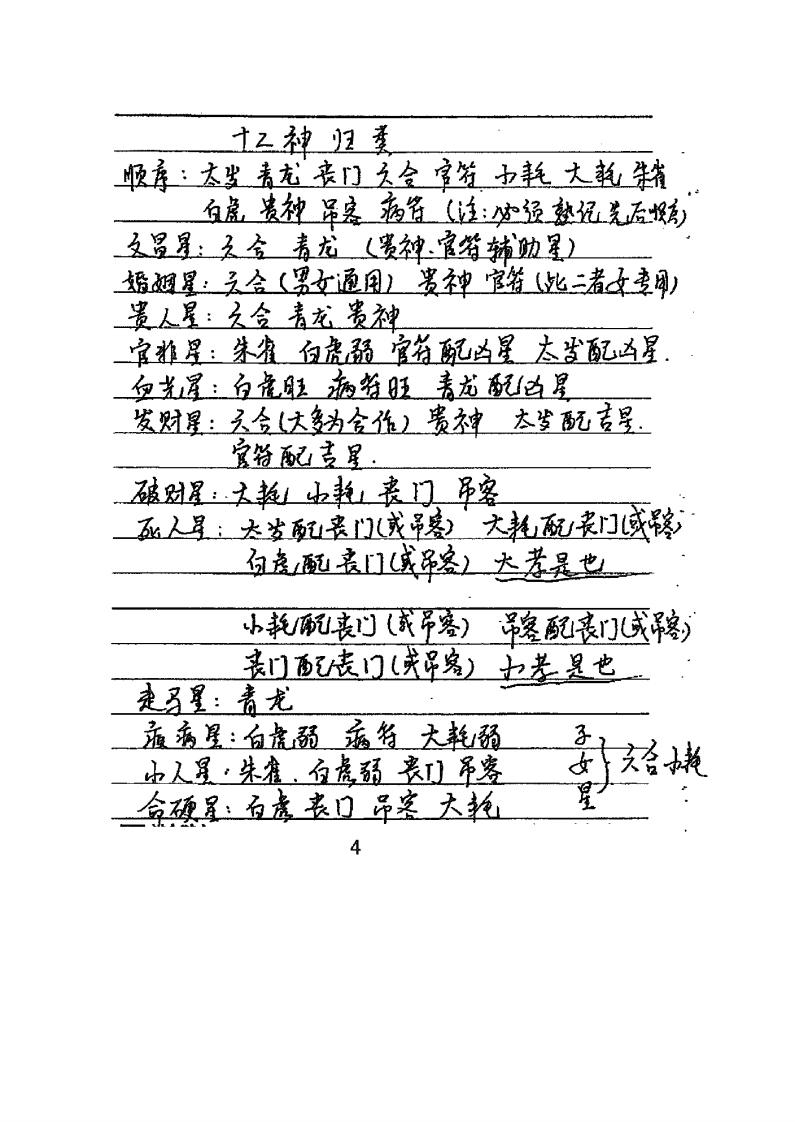 十二神归类
顺序：太岁 青龙 丧门 六合 官符 小耗 大耗 朱雀
白虎 贵神 吊客 病符（注：必须熟记先后顺序）
文昌星：六合 青龙 （贵神、官符辅助星）
婚姻星：六合（男女通用） 贵神 官符（此二者女专用）
贵人星：六合 青龙 贵神
官非星：朱雀 白虎弱 官符配凶星 太岁配凶星.
血光星：白虎旺 病符旺 青龙配凶星
发财星：六合（大多为合作） 贵神 太岁配吉星.
官符配吉星.
破财星：大耗, 小耗, 丧门 吊客
死人星：太岁配丧门（或吊客） 大耗配丧门（或吊客）
白虎配丧门（或吊客） 大孝是也
小耗配丧门（或吊客） 吊客配丧门（或吊客）
丧门配丧门（或吊客） 小孝是也
走马星：青龙
疾病星：白虎弱 病符 大耗弱
小人星：朱雀、白虎弱 丧门 吊客
命硬星：白虎 丧门 吊客 大耗
子女星｝六合 小耗
4